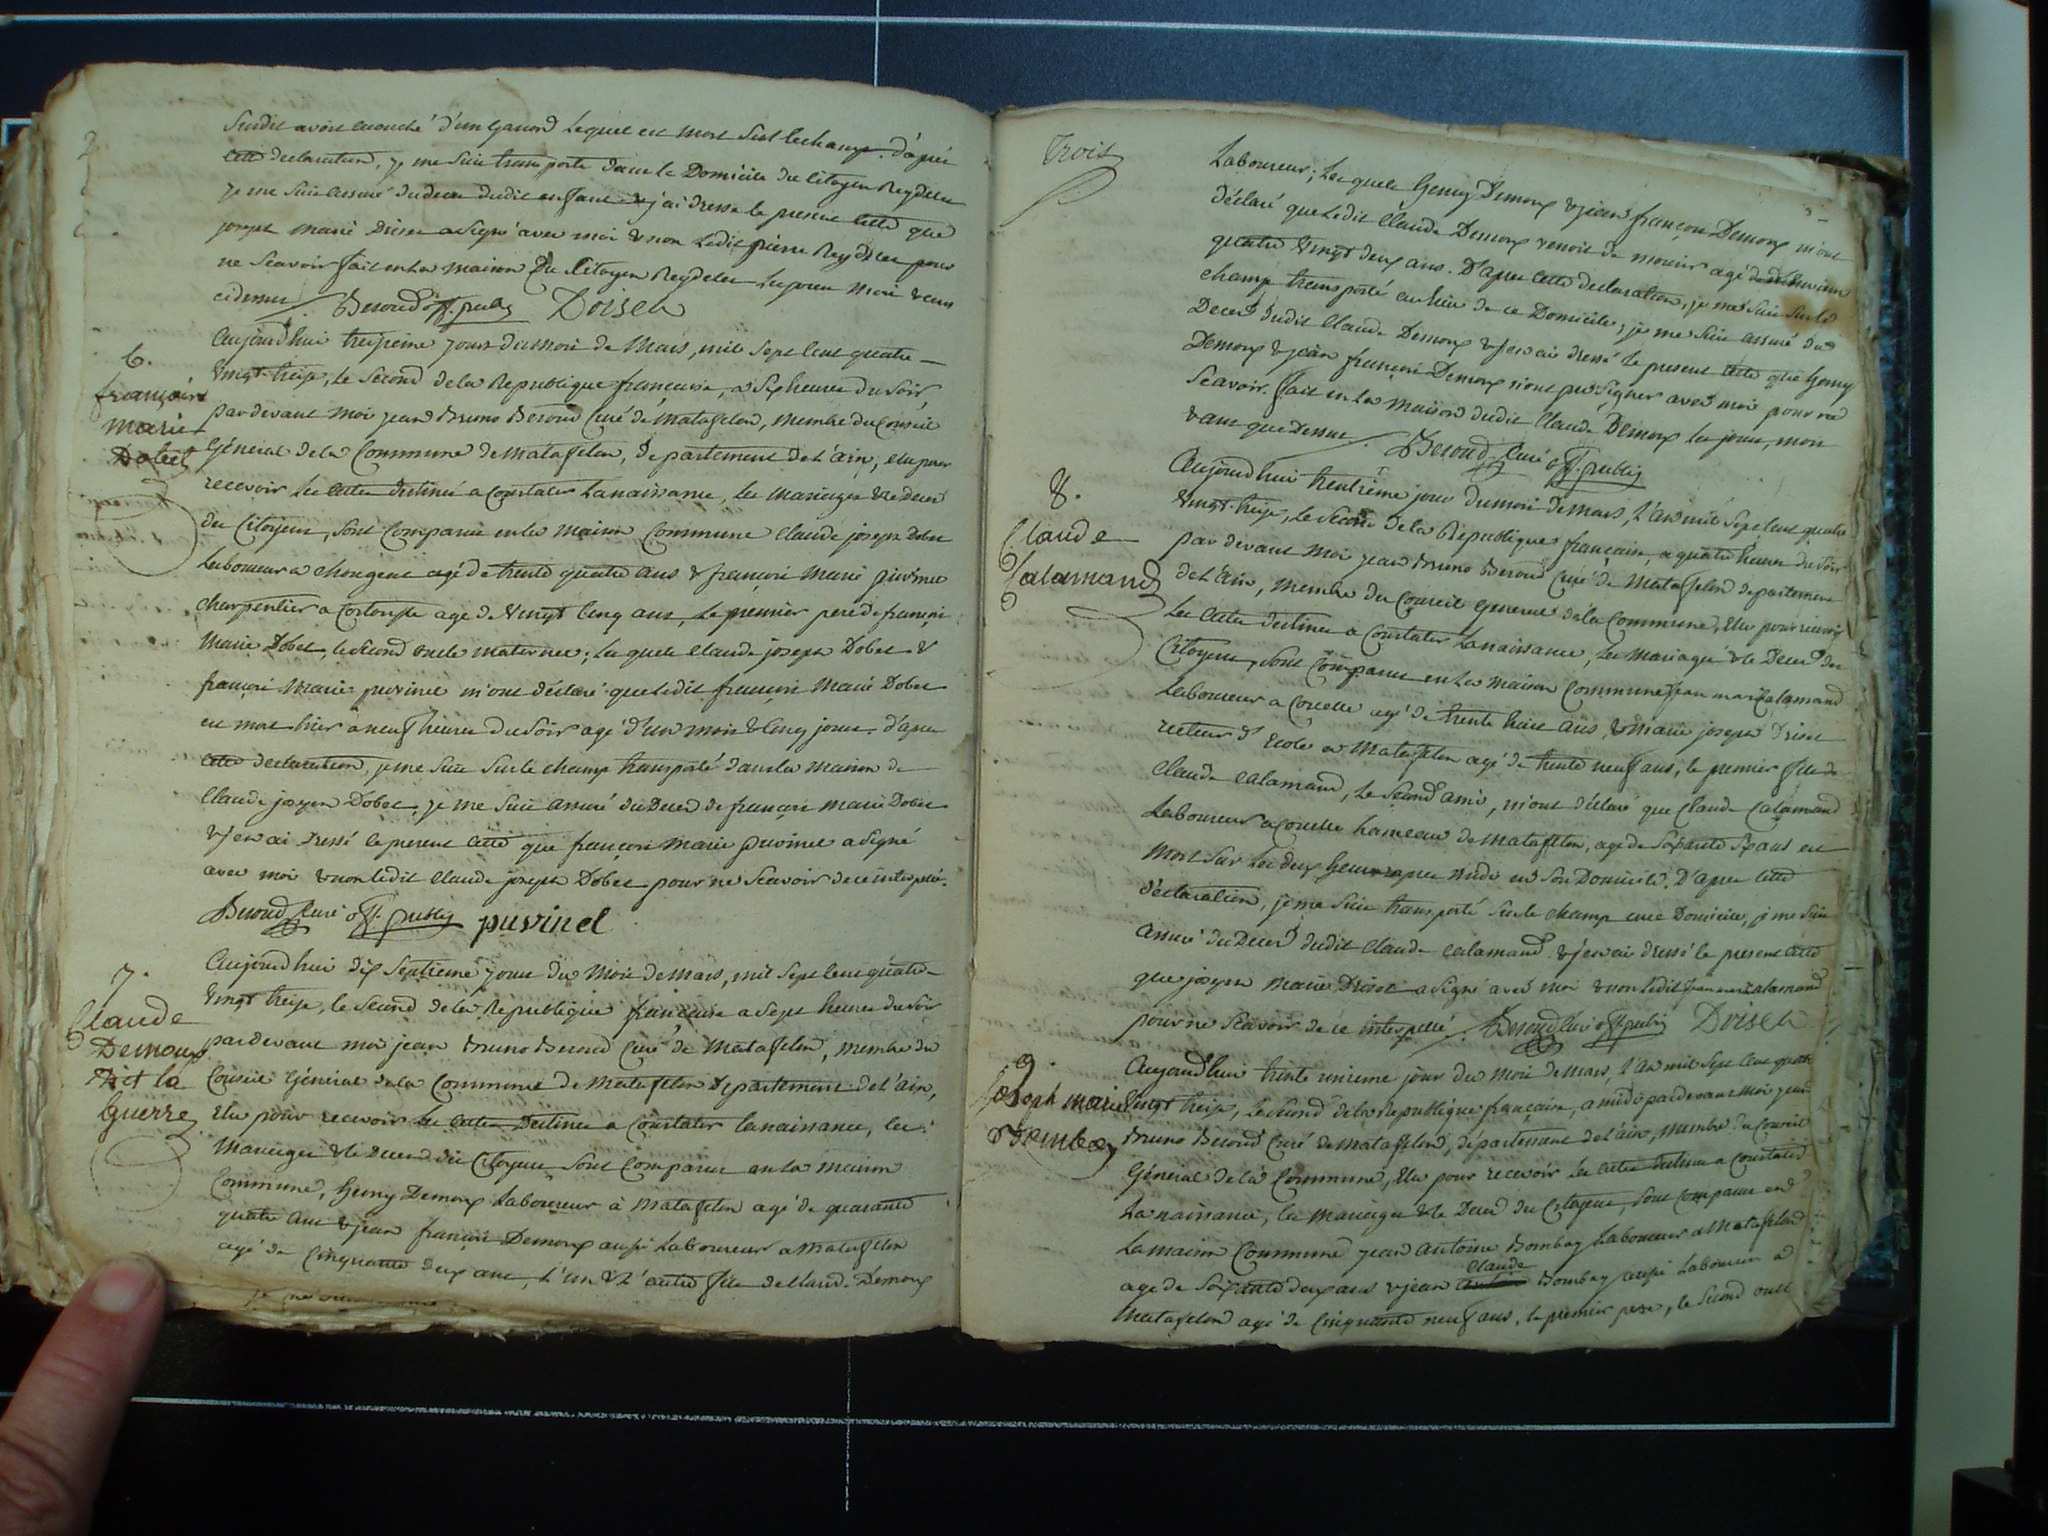 Susdit avoir accouché d'un garçon lequel est mort sur le champ. d'après
cette declaration, je me suis transporté dans le Domicile du Citoyen Reydelet
je me suis assuré du deces dudit enfant & j'ai dressé le present acte que
joseph marie Doisen a signé avec moi & non ledit pierre Reydelet pour
ne scavoir fait en la maison du Citoyen Reydelet les jour mois & an
cidessus. Beroud off. public Doisen
6.
françois
marie
Dobet
Aujourd'hui treizieme jour du mois de Mars, mil sept cent quatre
vingt treize, le second de la Republique francaise, a six heures du soir,
pardevant moi jean Bruno Beroud Curé de Matafelon, membre du Conseil
Général de la Commune de Matafelon, département de l'ain, elu pour
recevoir les actes destinés a constater la naissance, les mariages & le deces
des Citoyens, sont comparus en la maison Commune Claude joseph Dobet
Laboureur a Chongeat agé de trente quatre ans & françois Marie puvinel
charpentier a agé de vingt cinq ans, le premier pere de françois
Marie Dobet, le second oncle maternel; les quels Claude joseph Dobet &
françois Marie puvinel m'ont déclaré que ledit françois Marie Dobet
est mort hier à neuf heures du soir agé d'un mois & cinq jours. d'apres
cette declaration, je me suis sur le champ transporté dans la maison de
Claude joseph Dobet, je me suis assuré du Deces de françois marie Dobet
& j'en ai dressé le present acte que françois marie puvinel a signé
avec moi & non ledit Claude joseph Dobet pour ne scavoir de ce interpellé.
Beroud Curé off. public puvinel
7.
Claude
Demoux
Dict la
guerre
Aujourd'hui dix septieme jour du mois de mars, mil sept cent quatre
vingt treize, le second de la Republique francaise a sept heures du soir
pardevant moi jean Bruno Beroud Curé de Matafelon, membre du
Conseil Général de la Commune de Matafelon département de l'ain,
elu pour recevoir les actes Destinés a constater la naissance, les
Mariages & le Deces des Citoyens sont comparus en la maison
Commune, Demoux Laboureur à Matafelon agé de quarante
quatre ans & jean françois Demoux aussi Laboureur a Matafelon
agé de cinquante deux ans, l'un & l'autre fils de Claude Demoux
Trois
Laboureur; les quels Demoux & jean françois Demoux m'ont
déclaré que ledit Claude Demoux venoit de mourir agé d'environ
quatre vingt deux ans. D'apres cette declaration, je me suis sur le
champ transporté au lieu de ce Domicile, je me suis assuré du
Deces dudit Claude Demoux & j'en ai dressé le present acte que
Demoux & jean françois Demoux n'ont pu signer avec moi pour ne
Scavoir. fait en la maison dudit Claude Demoux les jour, mois
& an que Dessus. Beroud Curé off. public
8.
Claude
Calamand
Aujourd'hui trentieme jour du mois de mars, l'an mil sept cent quatre
vingt treize, le second de la Republique française, a quatre heures du soir
par devant moi jean Bruno Beroud Curé de Matafelon departement
de l'ain, membre du Conseil General de la Commune, elu pour recevoir
les actes destinés a constater la naissance, les Mariages & le Deces des
Citoyens, sont comparus en la maison Commune jean marie Calamand
Laboureur a Coiselet agé de trente huit ans, & Marie joseph Doisen
recteur d'Ecole a Matafelon agé de trente neuf ans, le premier fils de
Claude Calamand, le second ami, m'ont déclaré que Claude Calamand
Laboureur a Coiselet hameau de Matafelon, agé de soixante ans est
mort sur les deux heures apres midi en son Domicile. D'apres cette
déclaration, je me suis transporté sur le champ audit Domicile, je me suis
assuré du Deces dudit Claude Calamand & j'en ai dressé le present acte
que joseph Marie Doisen a signé avec moi & non ledit jean marie Calamand
pour ne scavoir de ce interpellé. Beroud Curé off. public Doisen
9.
joseph marie
Bombay
Aujourd'hui trente unieme jour du mois de mars, l'an mil sept cent quatre
vingt treize, le second de la Republique française, a midi pardevant moi jean
Bruno Beroud Curé de Matafelon, département de l'ain, membre du Conseil
Général de la Commune, elu pour recevoir les actes destinés a constater
la naissance, les mariages & le Deces des Citoyens, sont comparus en
la maison Commune jean antoine Bombay Laboureur a Matafelon
claude
agé de soixante deux ans & jean Bombay aussi Laboureur a
Matafelon agé de cinquante neuf ans, le premier pere, le second oncle